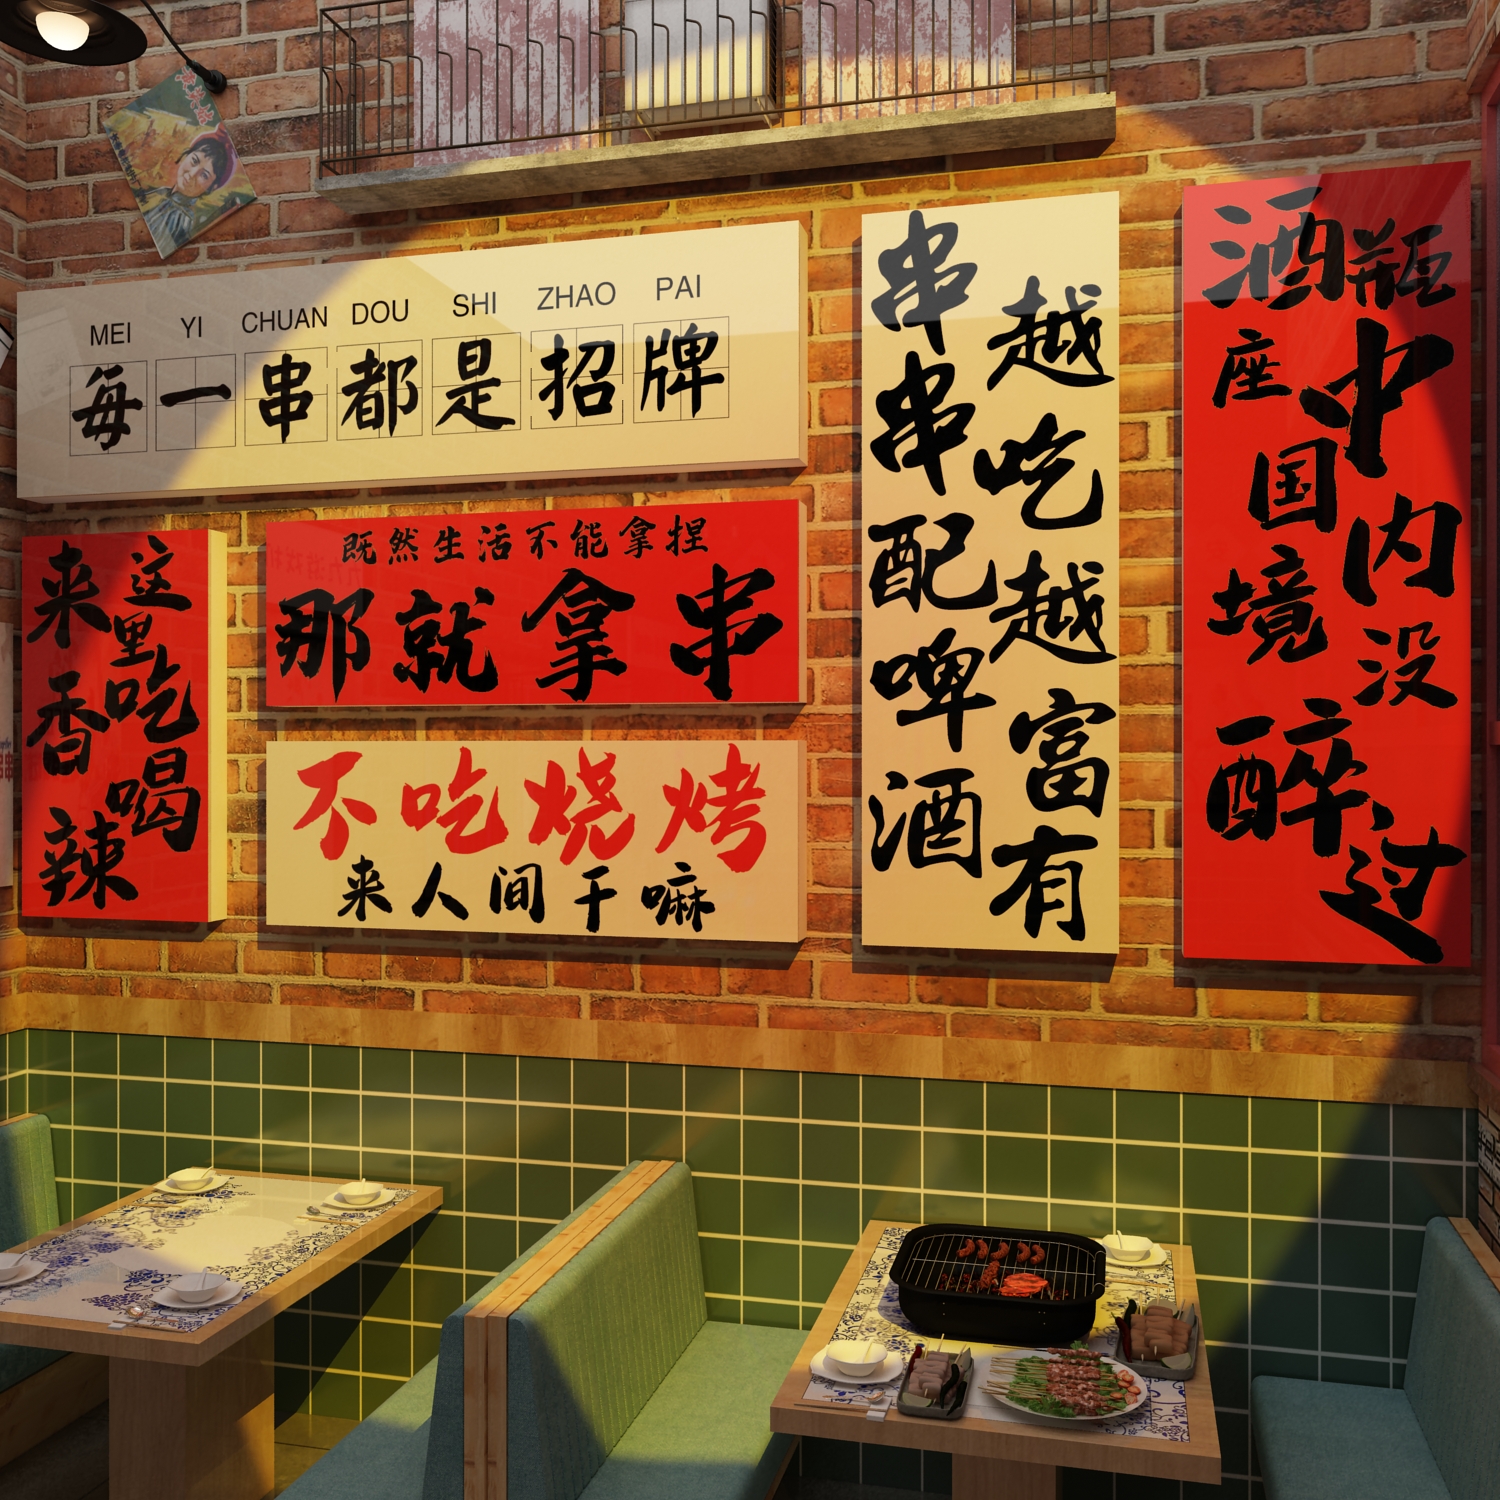 MEI YI CHUAN DOU SHI ZHAO PAI
每一串都是招牌
这里吃喝
来香辣
既然生活不能拿捏
那就拿串
不吃烧烤
来人间干嘛
串串配啤酒
越吃越富有
酒瓶座
中国境内
没醉过